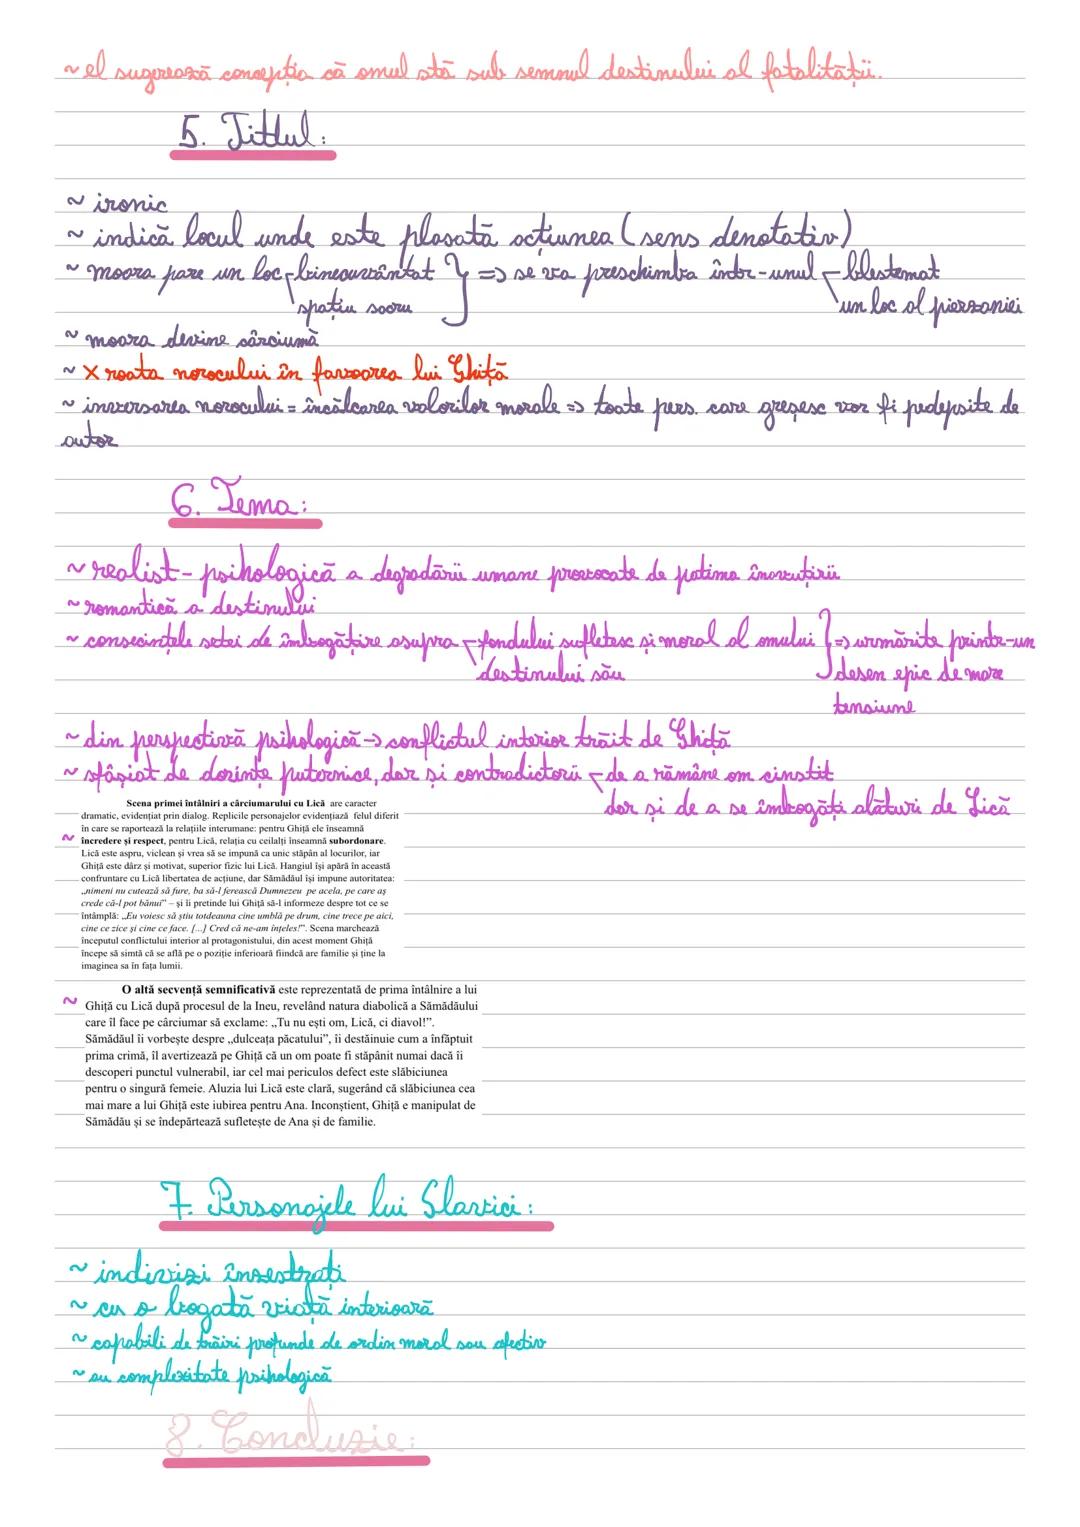 ~ el sugerează concepția că omul stă sub semnul destinului al fatalității.
5. Titlul:
~ ironic
~ indică locul unde este plasată acțiunea (sens denotativ)
~ moara pare un loc binecuvântat } => se va preschimba într-unul blestemat
spațiu sacru un loc al pierzaniei
~ moara devine cârciumă
~ X roata norocului în favoarea lui Ghiță
~ inversarea norocului = încălcarea valorilor morale => toate pers. care greșesc vor fi pedepsite de
autor
6. Tema:
~ realist - psihologică a degradării umane provocate de patima înavuțirii
~ romantică a destinului
~ consecințele setei de îmbogățire asupra fondului sufletesc și moral al omului } => urmărite printr-un
destinului său desen epic de mare
tensiune
~ din perspectivă psihologică -> conflictul interior trăit de Ghiță
~ sfâșiat de dorințe puternice, dar și contradictorii de a rămâne om cinstit
dar și de a se îmbogăți alături de Lică
Scena primei întâlniri a cârciumarului cu Lică are caracter
dramatic, evidențiat prin dialog. Replicile personajelor evidențiază felul diferit
în care se raportează la relațiile interumane: pentru Ghiță ele înseamnă
~ încredere și respect, pentru Lică, relația cu ceilalți înseamnă subordonare.
Lică este aspru, viclean și vrea să se impună ca unic stăpân al locurilor, iar
Ghiță este dârz și motivat, superior fizic lui Lică. Hangiul își apără în această
confruntare cu Lică libertatea de acțiune, dar Sămădăul își impune autoritatea:
„nimeni nu cutează să fure, ba să-l ferească Dumnezeu pe acela, pe care aș
crede că-l pot bănui” – și îi pretinde lui Ghiță să-l informeze despre tot ce se
întâmplă: „Eu voiesc să știu totdeauna cine umblă pe drum, cine trece pe aici,
cine ce zice și cine ce face. [...] Cred că ne-am înțeles!”. Scena marchează
începutul conflictului interior al protagonistului, din acest moment Ghiță
începe să simtă că se află pe o poziție inferioară fiindcă are familie și ține la
imaginea sa în fața lumii.
O altă secvență semnificativă este reprezentată de prima întâlnire a lui
~ Ghiță cu Lică după procesul de la Ineu, revelând natura diabolică a Sămădăului
care îl face pe cârciumar să exclame: „Tu nu ești om, Lică, ci diavol!”.
Sămădăul îi vorbește despre „dulceața păcatului”, îi destăinuie cum a înfăptuit
prima crimă, îl avertizează pe Ghiță că un om poate fi stăpânit numai dacă îi
descoperi punctul vulnerabil, iar cel mai periculos defect este slăbiciunea
pentru o singură femeie. Aluzia lui Lică este clară, sugerând că slăbiciunea cea
mai mare a lui Ghiță este iubirea pentru Ana. Inconștient, Ghiță e manipulat de
Sămădău și se îndepărtează sufletește de Ana și de familie.
7. Personajele lui Slavici:
~ indivizi înzestrați
~ cu o bogată viață interioară
~ capabili de trăiri profunde de ordin moral sau afectiv
~ au complexitate psihologică
8. Concluzie: